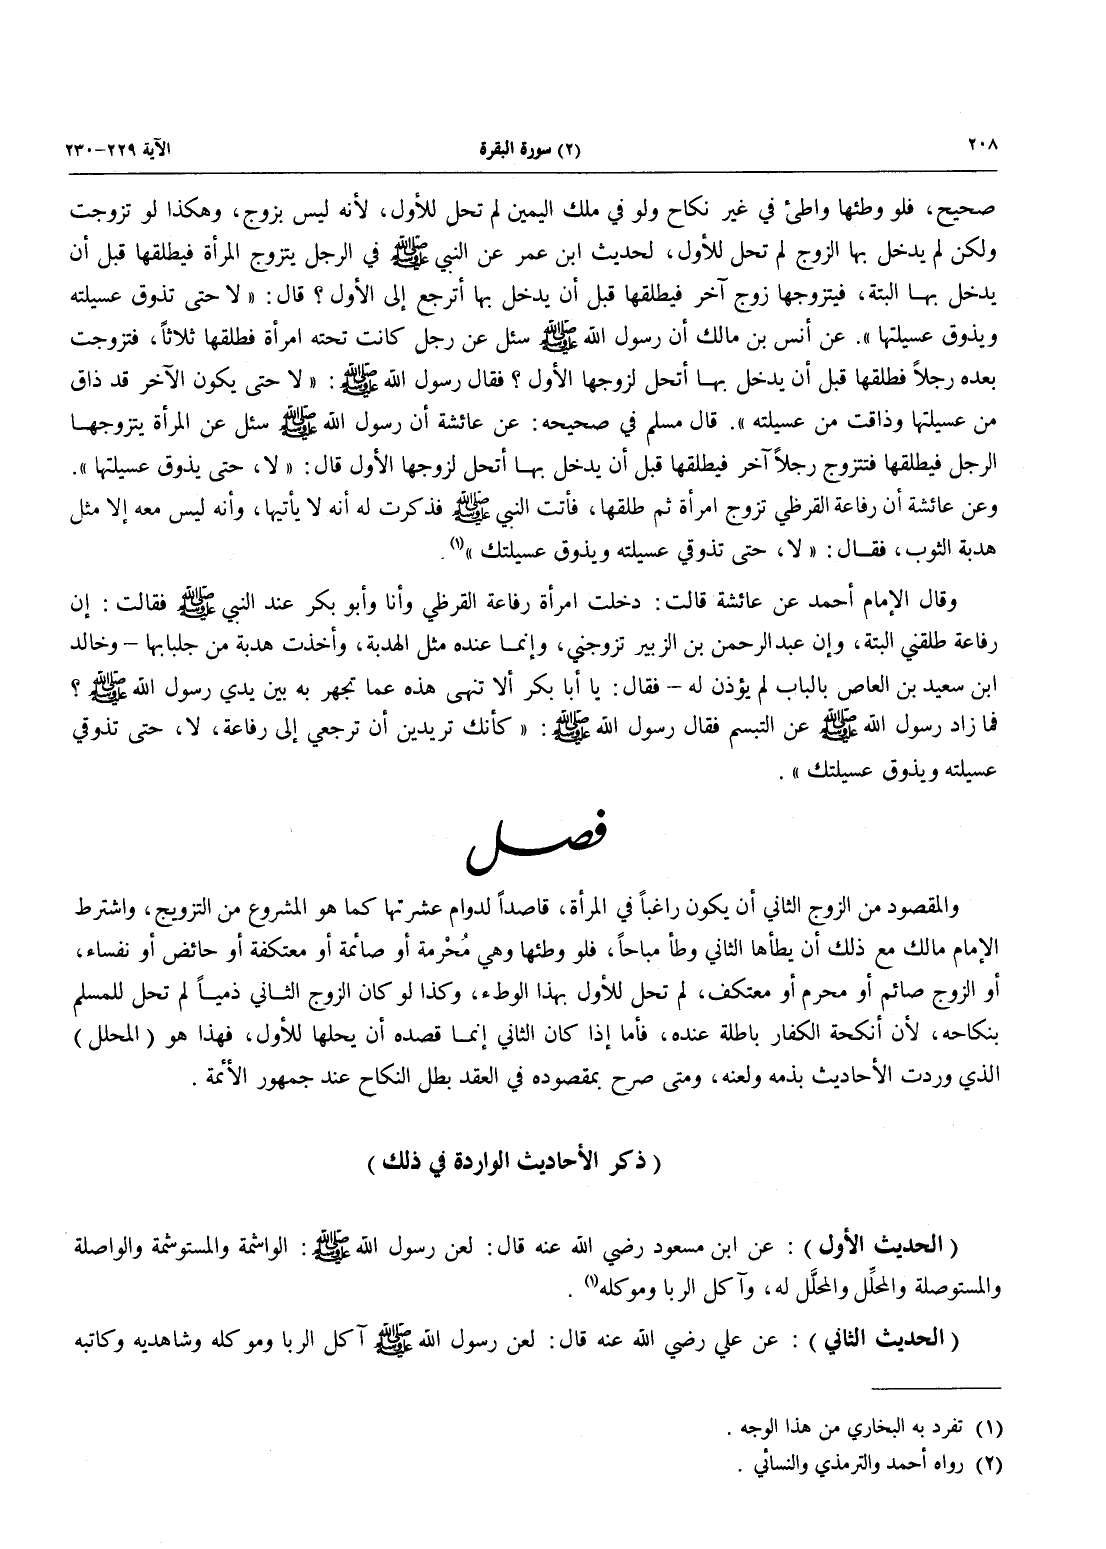 ٢٠٨ (٢) سورة البقرة الآية ٢٢٩-٢٣٠
صحيح، فلو وطئها واطئ في غير نكاح ولو في ملك اليمين لم تحل للأول، لأنه ليس بزوج، وهكذا لو تزوجت
ولكن لم يدخل بها الزوج لم تحل للأول، لحديث ابن عمر عن النبي ﷺ في الرجل يتزوج المرأة فيطلقها قبل أن
يدخل بهـا البتة، فيتزوجها زوج آخر فيطلقها قبل أن يدخل بها أترجع إلى الأول؟ قال: « لا حتى تذوق عسيلته
ويذوق عسيلتها ». عن أنس بن مالك أن رسول الله ﷺ سئل عن رجل كانت تحته امرأة فطلقها ثلاثاً، فتزوجت
بعده رجلاً فطلقها قبل أن يدخل بهـا أتحل لزوجها الأول؟ فقال رسول الله ﷺ: « لا حتى يكون الآخر قد ذاق
من عسيلتها وذاقت من عسيلته ». قال مسلم في صحيحه: عن عائشة أن رسول الله ﷺ سئل عن المرأة يتزوجهـا
الرجل فيطلقها فتتزوج رجلاً آخر فيطلقها قبل أن يدخل بهـا أتحل لزوجها الأول قال: « لا، حتى يذوق عسيلتها ».
وعن عائشة أن رفاعة القرظي تزوج امرأة ثم طلقها، فأتت النبي ﷺ فذكرت له أنه لا يأتيها، وأنه ليس معه إلا مثل
هدبة الثوب، فقـال: « لا، حتى تذوقي عسيلته ويذوق عسيلتك »(١).
وقال الإمام أحمد عن عائشة قالت: دخلت امرأة رفاعة القرظي وأنا وأبو بكر عند النبي ﷺ فقالت: إن
رفاعة طلقني البتة، وإن عبدالرحمن بن الزبير تزوجني، وإنمـا عنده مثل الهدبة، وأخذت هدبة من جلبابها – وخالد
ابن سعيد بن العاص بالباب لم يؤذن له – فقال: يا أبا بكر ألا تنهى هذه عما تجهر به بين يدي رسول الله ﷺ؟
فما زاد رسول الله ﷺ عن التبسم فقال رسول الله ﷺ: « كأنك تريدين أن ترجعي إلى رفاعة، لا، حتى تذوقي
عسيلته ويذوق عسيلتك ».
فصـل
والمقصود من الزوج الثاني أن يكون راغباً في المرأة، قاصداً لدوام عشرتها كما هو المشروع من التزويج، واشترط
الإمام مالك مع ذلك أن يطأها الثاني وطأ مباحاً، فلو وطئها وهي مُحْرمة أو صائمة أو معتكفة أو حائض أو نفساء،
أو الزوج صائم أو محرم أو معتكف، لم تحل للأول بهذا الوطء، وكذا لو كان الزوج الثـاني ذميـاً لم تحل للمسلم
بنكاحه، لأن أنكحة الكفار باطلة عنده، فأما إذا كان الثاني إنمـا قصده أن يحلها للأول، فهذا هو ( المحلل )
الذي وردت الأحاديث بذمه ولعنه، ومتى صرح بمقصوده في العقد بطل النكاح عند جمهور الأئمة .
( ذكر الأحاديث الواردة في ذلك )
( الحديث الأول ) : عن ابن مسعود رضي الله عنه قال: لعن رسول الله ﷺ: الواشمة والمستوشمة والواصلة
والمستوصلة والمحلِّل والمحلَّل له، وآكل الربا وموكله(١) .
( الحديث الثاني ) : عن علي رضي الله عنه قال: لعن رسول الله ﷺ آكل الربا وموكله وشاهديه وكاتبه
(١) تفرد به البخاري من هذا الوجه .
(٢) رواه أحمد والترمذي والنسائي .